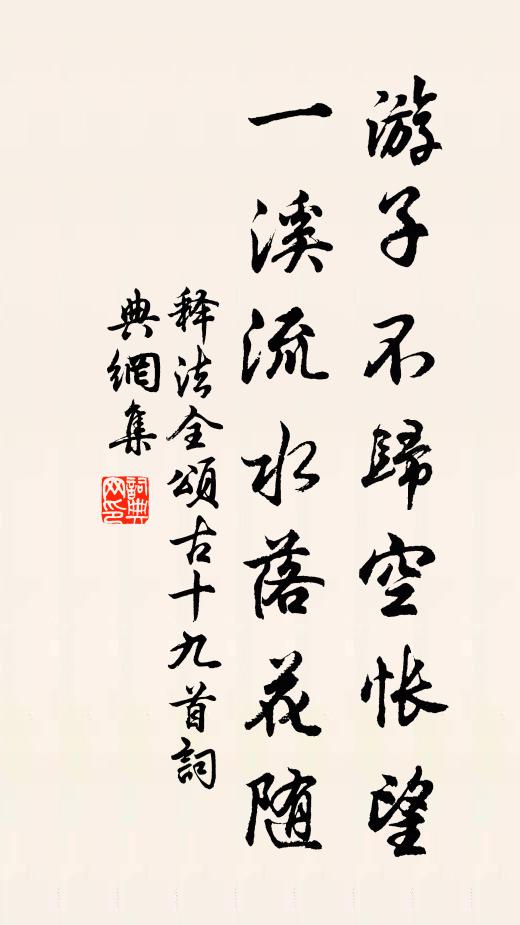 游子不歸空悵望
一溪流水落花随
释法全頌古十九首詞
典網集
詞典网印